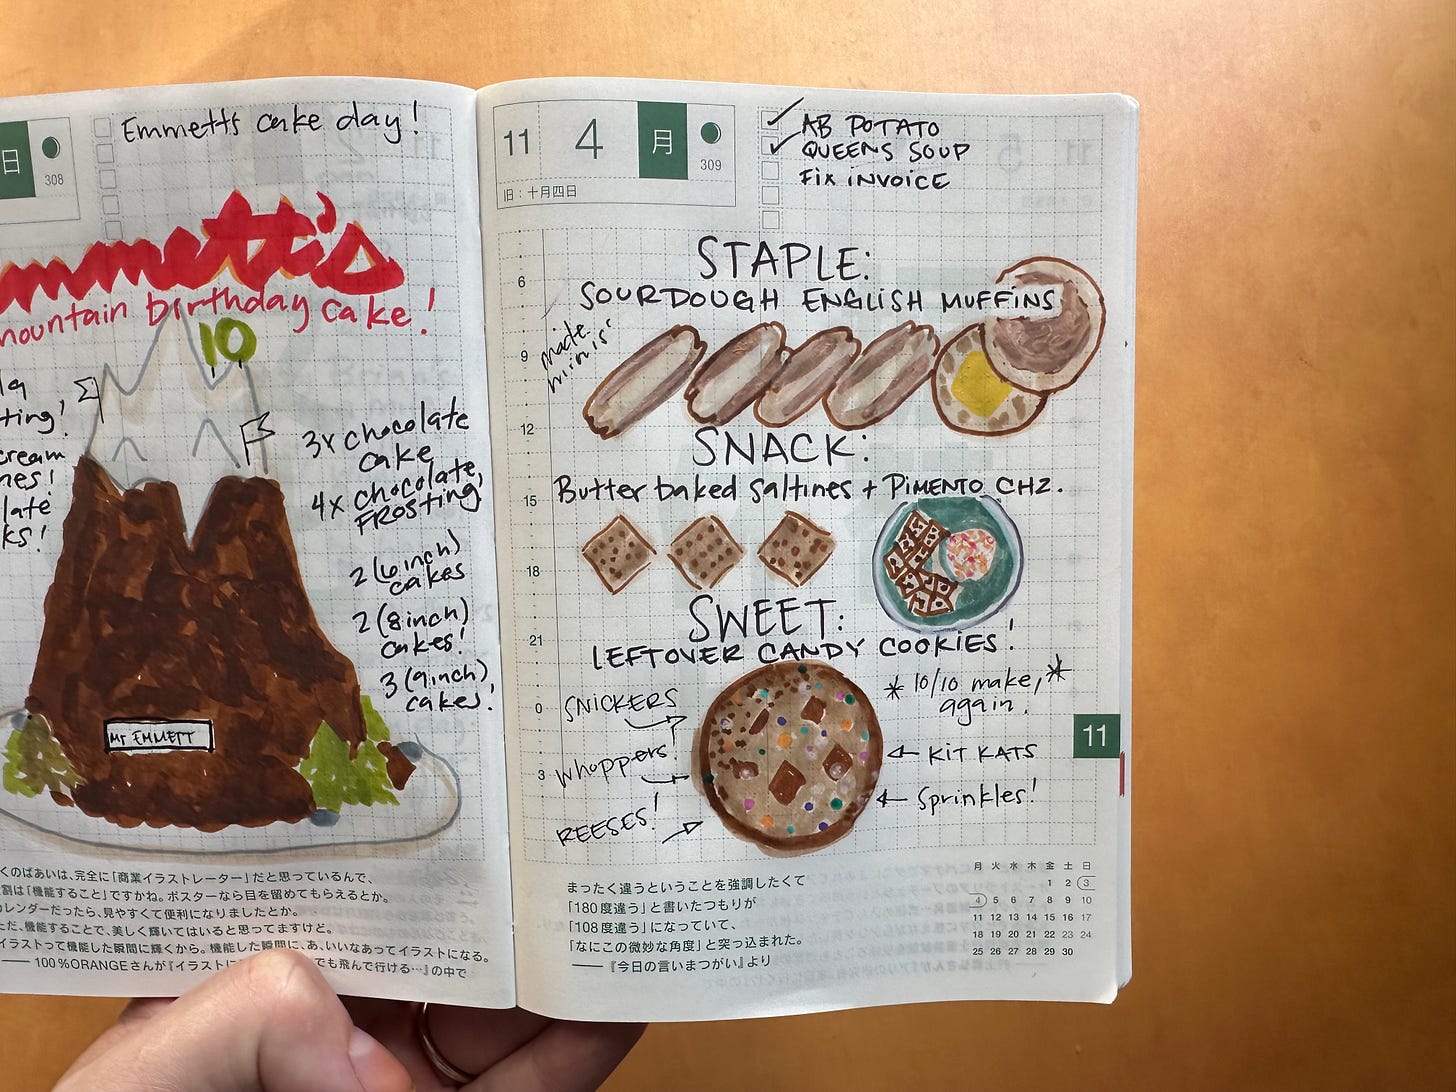 日
308
Emmett's cake day!
mmett's
mountain birthday cake!
10
ting!
cream
late
ks!
3x chocolate
cake
4x chocolate
FROSTING,
2 (6 inch)
cakes
2 (8 inch)
cakes!
3 (9 inch)
cakes!
MT EMMETT
くのばあいは、完全に「商業イラストレーター」だと思っているんで、
割は「機能すること」ですかね。ポスターなら目を留めてもらえるとか。
カレンダーだったら、見やすくて便利になりましたとか。
ただ、機能することで、美しく輝いてはいると思ってますけど。
イラストって機能した瞬間に輝くから。機能した瞬間に、あ、いいなあってイラストになる。
—— 100%ORANGEさんが『イラストに でも飛んで行ける…』の中で
11 4 月
309
旧:十月四日
AB POTATO
QUEENS SOUP
FIX INVOICE
STAPLE:
SOURDOUGH ENGLISH MUFFINS
made
minis
SNACK:
Butter baked Saltines + PIMENTO CHZ.
SWEET:
LEFTOVER CANDY COOKIES!
SNICKERS
Whoppers!
REESES!
* 10/10 make *
again.
KIT KATS
Sprinkles!
6
9
12
15
18
21
0
3
11
まったく違うということを強調したくて
「180度違う」と書いたつもりが
「108度違う」になっていて、
「なにこの微妙な角度」と突っ込まれた。
——『今日の言いまつがい』より
月 火 水 木 金 土 日
1 2 3
4 5 6 7 8 9 10
11 12 13 14 15 16 17
18 19 20 21 22 23 24
25 26 27 28 29 30